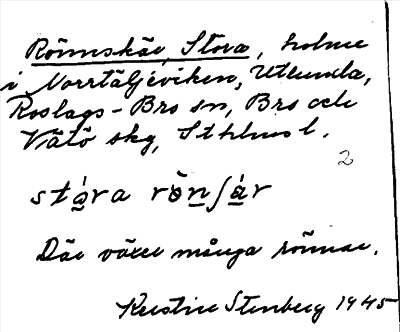 Rönnskär, Stora, holme
i Norrtäljeviken, Utlunda,
Roslags-Bro sn, Bro och
Vätö skg, Sthlms l.
2
stá̱ra rö̀n̲ʃá̱r
Där växer många rönnar.
Kerstin Stenberg 1945